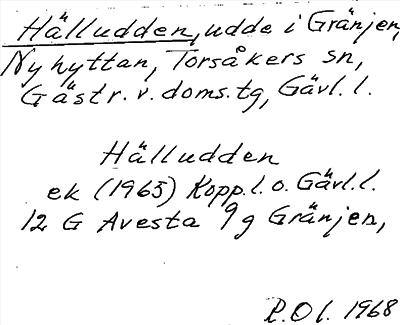 Hälludden, udde i Gränjen,
Nyhyttan, Torsåkers sn,
Gästr. v. doms.tg, Gävl. l.
Hälludden
ek (1965) Kopp. l. o. Gävl. l.
12 G Avesta 9 g Gränjen,
P. O l. 1968